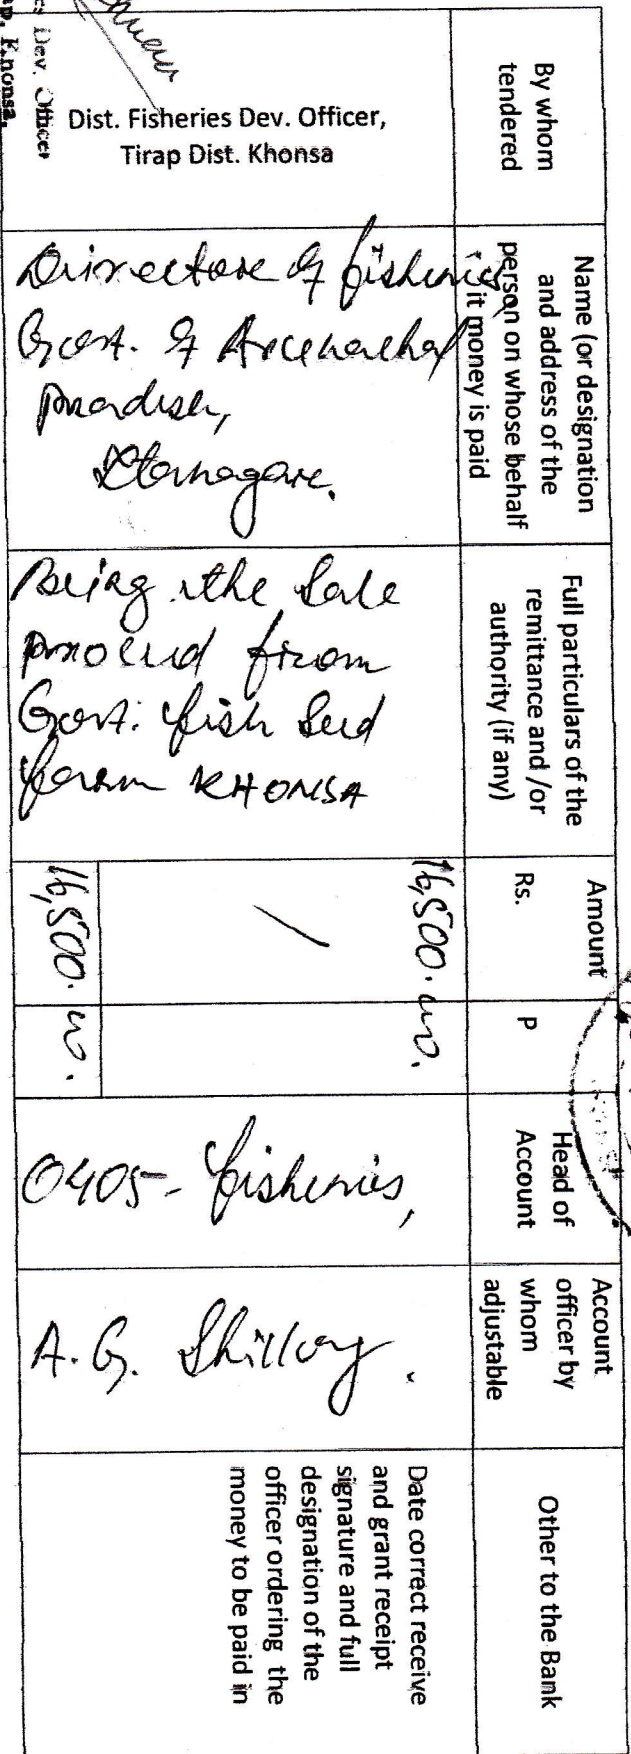 By whom
tendered
Name (or designation
and address of the
person on whose behalf
it money is paid
Full particulars of the
remittance and /or
authority (if any)
Amount
Rs.
P
Head of
Account
Account
officer by
whom
adjustable
Other to the Bank
Dist. Fisheries Dev. Officer,
Tirap Dist. Khonsa
Directore of fisheries
Govt. of Arunachal
pradesh,
Itanagare.
Being the Sale
proceed from
Govt. fish Seed
farm KHONSA
16,500.00.
16,500.00.
0405- fisheries,
A.G. Shillong.
Date correct receive
and grant receipt
signature and full
designation of the
officer ordering the
money to be paid in
Dev. Officer
Khonsa.